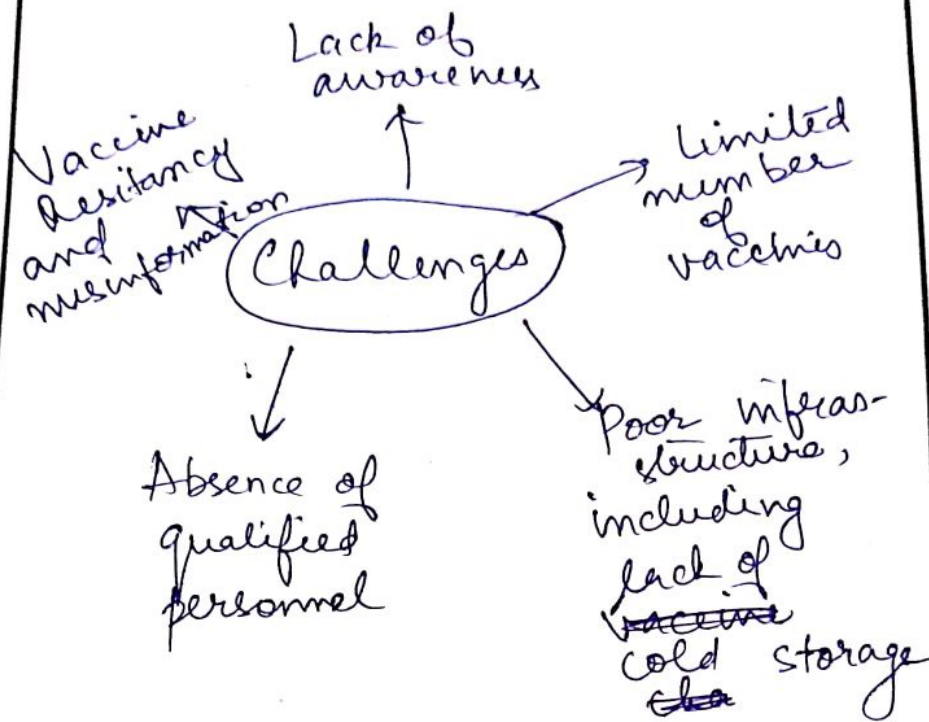 Lack of
awareness
Vaccine
Hesitancy
and
misinformation
Limited
number
of
vaccines
Challenges
Absence of
qualified
personnel
Poor infras-
tructure,
including
lack of
vaccine
cold storage
cha